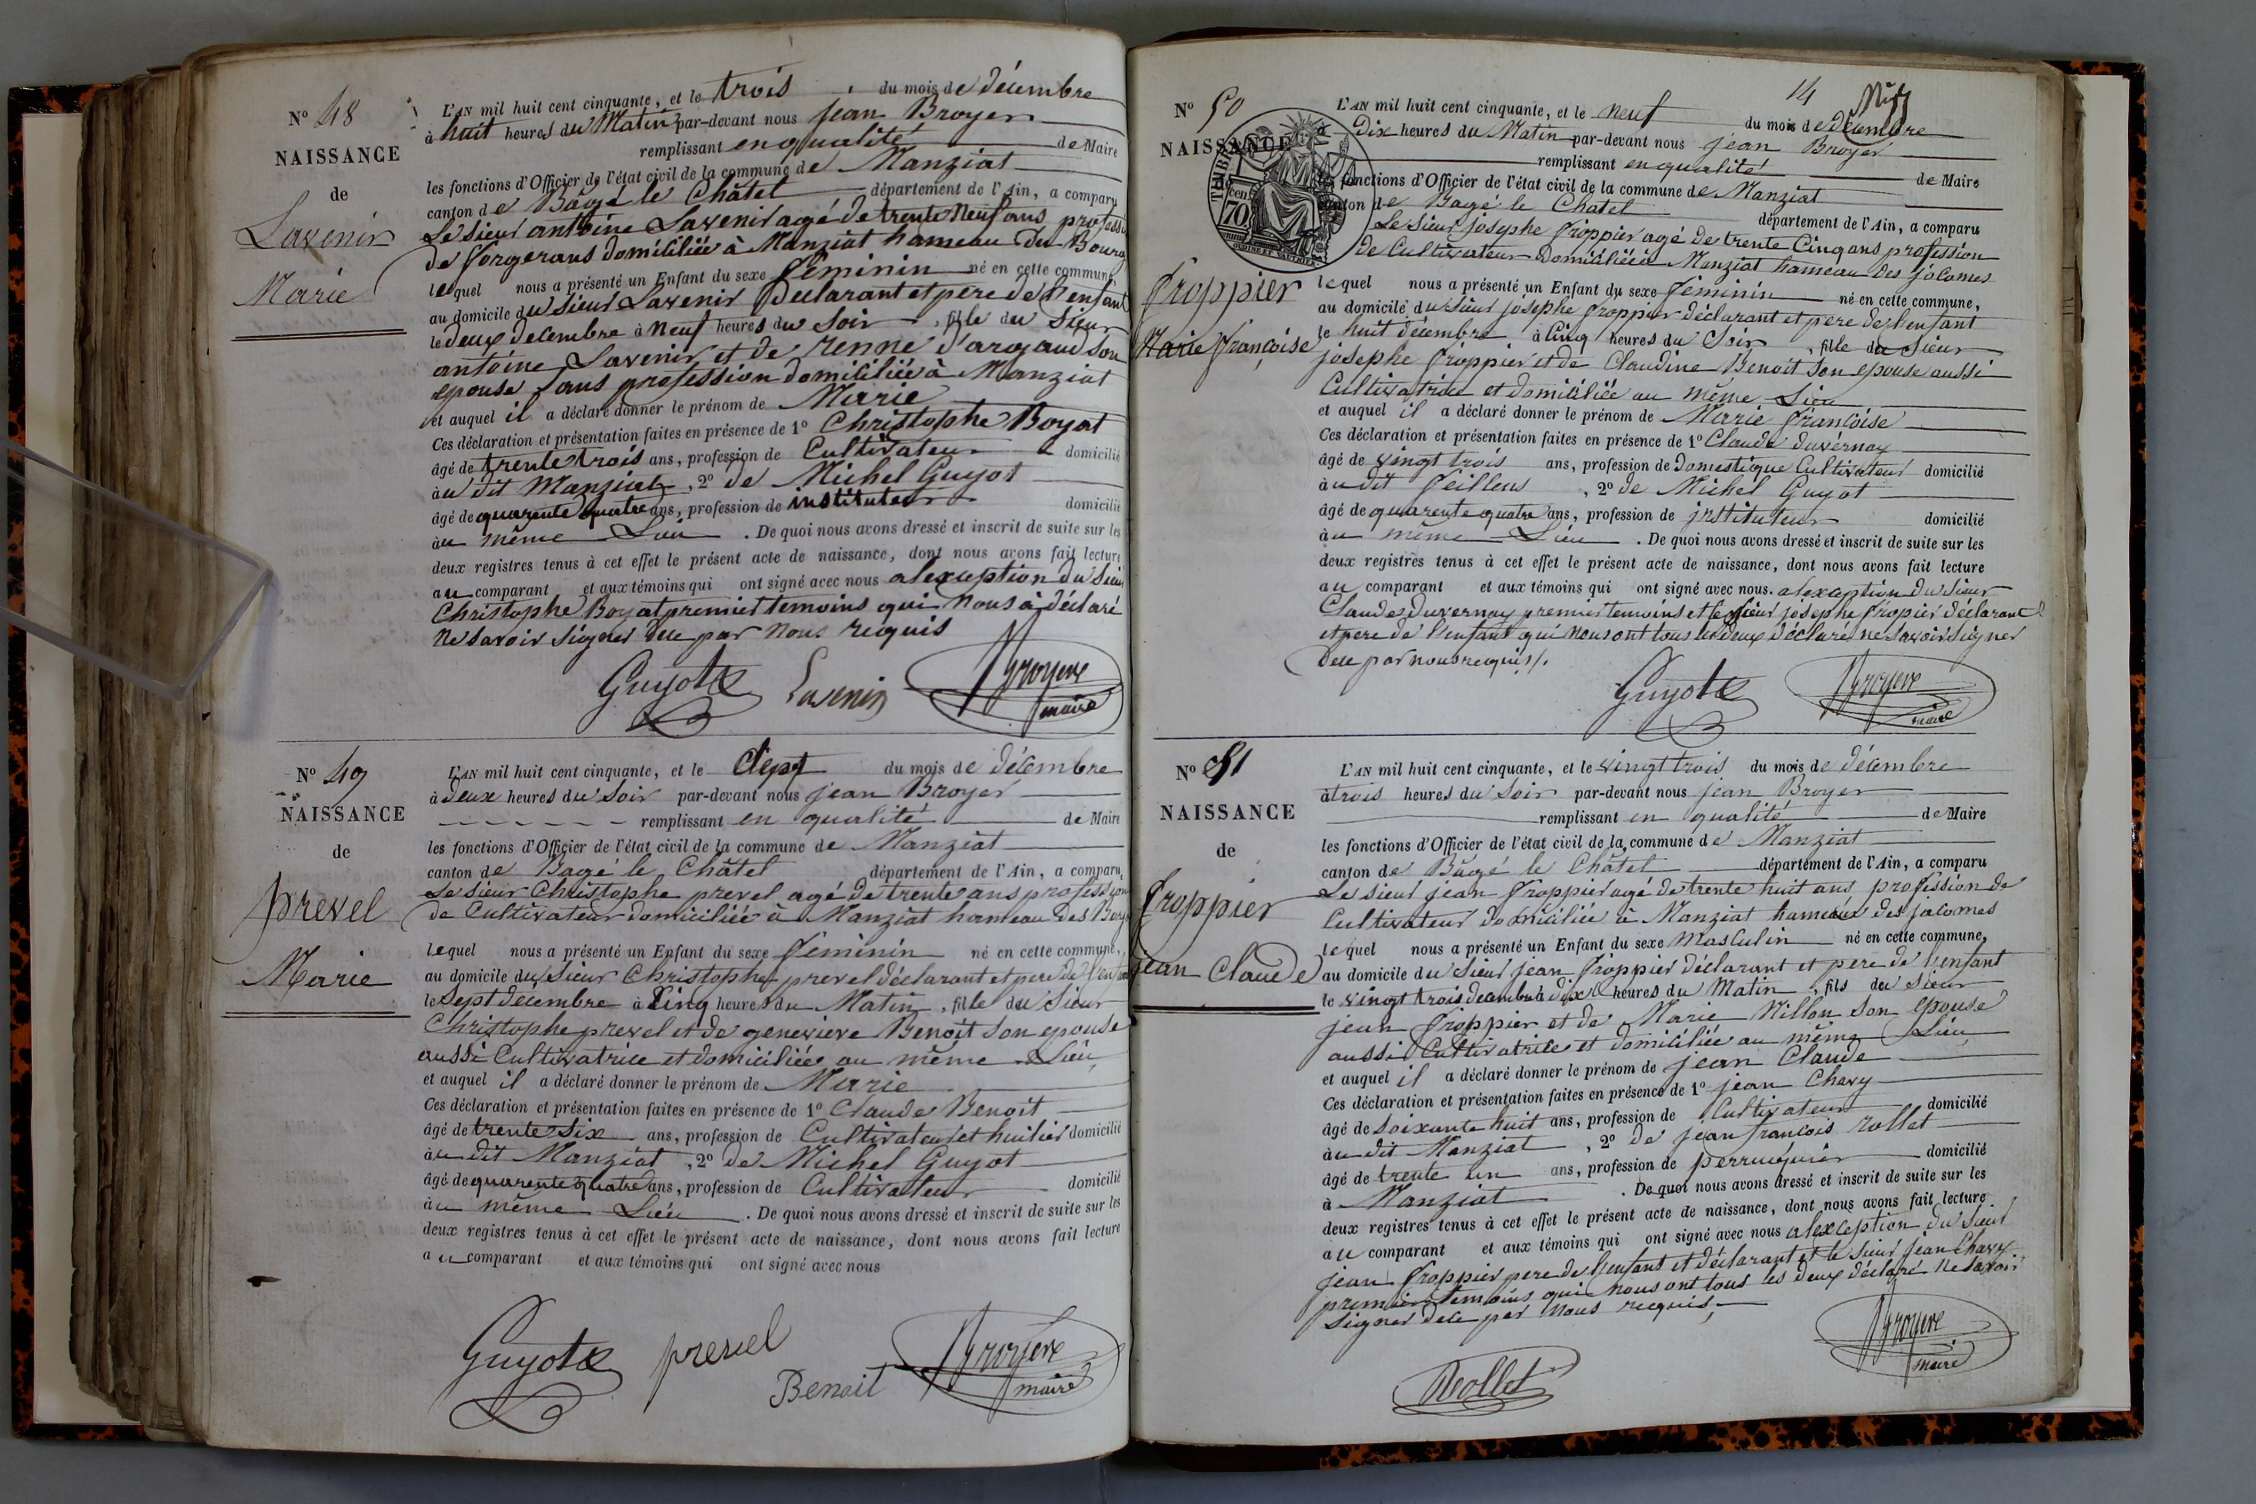 N° 48
NAISSANCE
de
Lavenir
Marie
L'AN mil huit cent cinquante, et le trois du mois de décembre
à huit heures du Matin par-devant nous jean Broyer
remplissant en qualité de Maire
les fonctions d'Officier de l'état civil de la commune de Manziat
canton de Bâgé le Châtel département de l'Ain, a comparu
Le sieur antoine Lavenir agé de trente neuf ans professi
de forgerans domiciliée à Manziat hameau du Bourg
lequel nous a présenté un Enfant du sexe féminin né en cette commune,
au domicile du sieur Lavenir Déclarant et pere de l'enfant
le deux decembre à Neuf heures du Soir, fille du Sieur
antoine Lavenir et de renne d'argaud son
epouse sans profession domiciliée à Manziat
et auquel il a déclaré donner le prénom de Marie
Ces déclaration et présentation faites en présence de 1° Christophe Boyat
âgé de trente trois ans, profession de Cultivateur domicilié
à u dit Manziat, 2° de Michel Guyot
âgé de quarente quatre ans, profession de instituteur domicilié
à u même Lieu. De quoi nous avons dressé et inscrit de suite sur les
deux registres tenus à cet effet le présent acte de naissance, dont nous avons fait lecture
au comparant et aux témoins qui ont signé avec nous alexception du Sieur
Christophe Boyat premier temoins qui nous à déclaré
ne savoir signer dece par nous requis
Guyot Lavenir Broyer
maire
N° 49
NAISSANCE
de
prevel
Marie
L'AN mil huit cent cinquante, et le Sept du mois de décembre
à deux heures du Soir par-devant nous jean Broyer
remplissant en qualité de Maire
les fonctions d'Officier de l'état civil de la commune de Manziat
canton de Bagé le Châtel département de l'Ain, a comparu
Le sieur Christophe prevel agé de trente ans profession
de Cultivateur domiciliée à Manziat hameau des Boy
lequel nous a présenté un Enfant du sexe féminin né en cette commune,
au domicile du Sieur Christophe prevel déclarant et pere de l'enfan
le Sept decembre à Cinq heures du Matin, fille du Sieur
Christophe prevel et de genevieve Benoit son epouse
aussi Cultivatrice et domiciliée au même Lieu
et auquel il a déclaré donner le prénom de Marie
Ces déclaration et présentation faites en présence de 1° Claude Benoit
âgé de trente Six ans, profession de Cultivateur et huilier domicilié
à u dit Manziat, 2° de Michel Guyot
âgé de quarente quatre ans, profession de Cultivateur domicilié
à u même Lieu. De quoi nous avons dressé et inscrit de suite sur les
deux registres tenus à cet effet le présent acte de naissance, dont nous avons fait lecture
a u comparant et aux témoins qui ont signé avec nous
Guyot prevel Benoit Broyer
maire
14
N° 50
NAISSANCE
TIMBRE
70 cen
froppier
Marie françoise
L'AN mil huit cent cinquante, et le neuf du mois de décembre
à Dix heures du Matin par-devant nous jean Broyer
remplissant en qualité de Maire
les fonctions d'Officier de l'état civil de la commune de Manziat
canton de Bagé le Chatel département de l'Ain, a comparu
Le Sieur josephe froppier agé de trente Cinq ans profession
de Cultivateur Domiciliée à Manziat hameau des jacomes
lequel nous a présenté un Enfant du sexe féminin né en cette commune,
au domicile du Sieur josephe froppier déclarant et pere de l'enfant
le huit décembre à Cinq heures du Soir, fille du Sieur
josephe froppier et de Claudine Benoit Son epouse aussi
Cultivatrice et domiciliée au même Lieu
et auquel il a déclaré donner le prénom de Marie françoise
Ces déclaration et présentation faites en présence de 1° Claude duvernay
âgé de vingt trois ans, profession de Domestique Cultivateur domicilié
à u dit feillens, 2° de Michel Guyot
âgé de quarente quatre ans, profession de jnstituteur domicilié
à u même Lieu. De quoi nous avons dressé et inscrit de suite sur les
deux registres tenus à cet effet le présent acte de naissance, dont nous avons fait lecture
au comparant et aux témoins qui ont signé avec nous. alexception du Sieur
Claude Duvernay premier temoins et le Sieur josephe fropier déclarant
et pere de l'enfant qui nous ont tous les deux déclaré ne savoir signer
dece par nous requis /.
Guyot Broyer
maire
N° 51
NAISSANCE
de
froppier
jean Claude
L'AN mil huit cent cinquante, et le vingt trois du mois de décembre
à trois heures du Soir par-devant nous jean Broyer
remplissant en qualité de Maire
les fonctions d'Officier de l'état civil de la commune de Manziat
canton de Bâgé le Châtel département de l'Ain, a comparu
Le sieur jean froppier agé de trente huit ans profession de
Cultivateur domiciliée à Manziat hameaux des jacomes
lequel nous a présenté un Enfant du sexe Masculin né en cette commune,
au domicile du Sieur jean froppier déclarant et pere de l'enfant
le vingt trois decembre à dix heures du Matin, fils du Sieur
jean froppier et de Marie Millon son epouse
aussi Cultivatrice et domiciliée au même Lieu
et auquel il a déclaré donner le prénom de jean Claude
Ces déclaration et présentation faites en présence de 1° jean Chavy
âgé de Soixante huit ans, profession de Cultivateur domicilié
à u dit Manziat, 2° de jean francois rollet
âgé de trente un ans, profession de perruquier domicilié
à Manziat. De quoi nous avons dressé et inscrit de suite sur les
deux registres tenus à cet effet le présent acte de naissance, dont nous avons fait lecture
a u comparant et aux témoins qui ont signé avec nous alexception du Sieur
jean froppier pere de l'enfant et déclarant et le Sieur jean Chavy
premier temoins qui nous ont tous les deux déclaré ne savoir
signer dece par nous requis,
Broyer
maire
Rollet